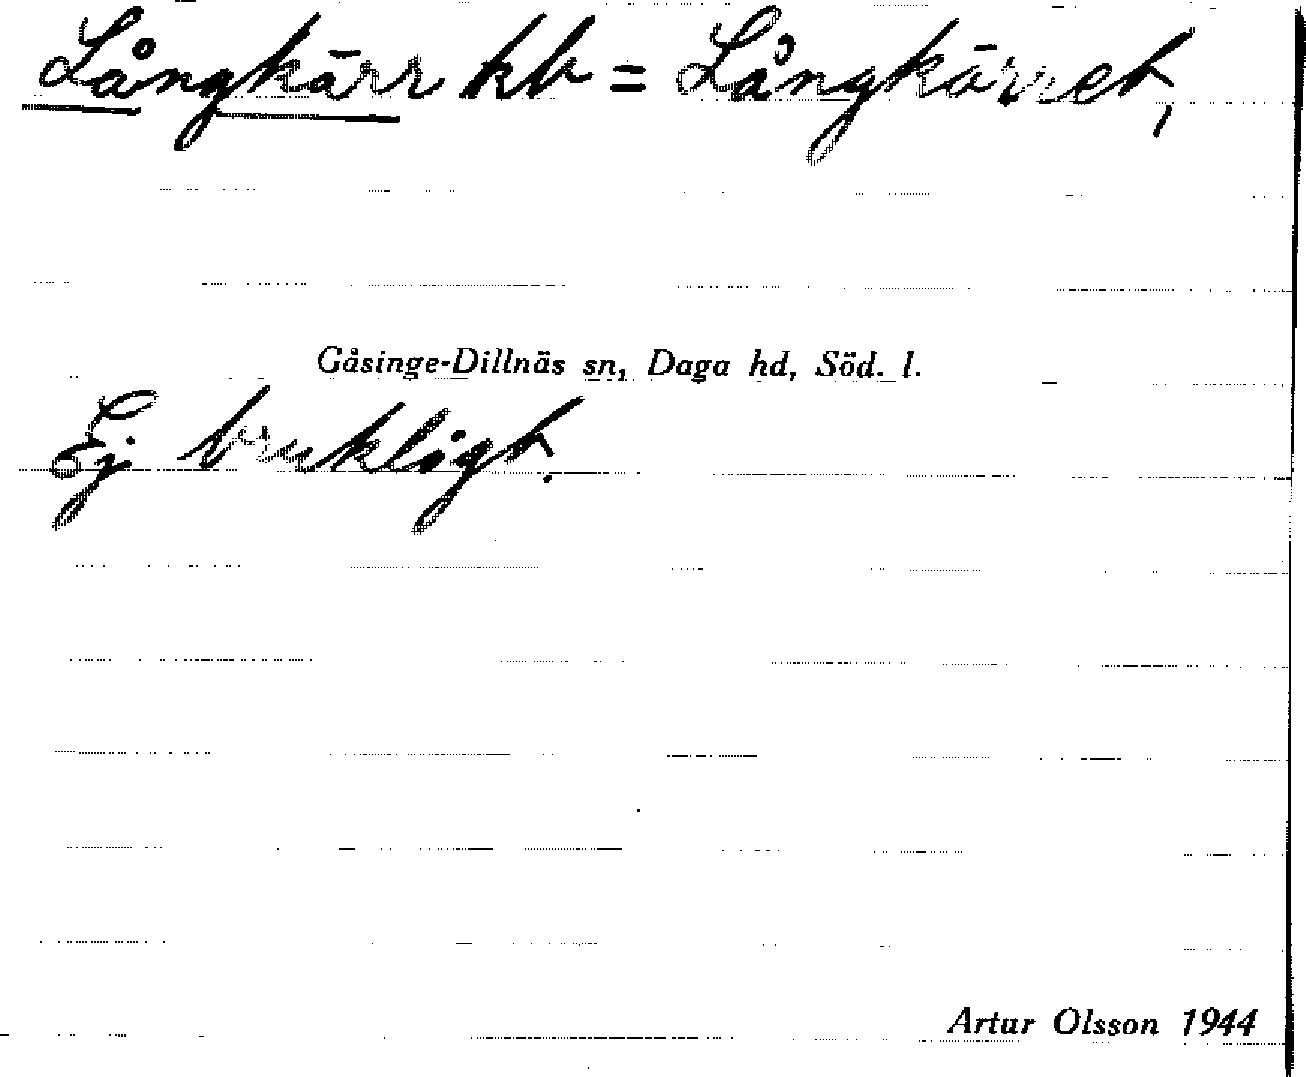 Långkärr kb = Långkärret,
Gåsinge-Dillnäs sn, Daga hd, Söd. l.
Ej brukligt.
Artur Olsson 1944